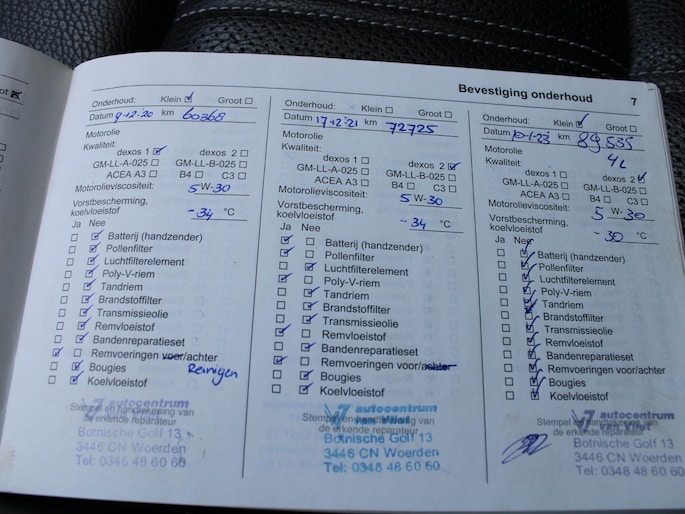 Bevestiging onderhoud 7
Onderhoud: Klein ☑ Groot ☐
Datum 9-12-'20 km 60368
Motorolie
Kwaliteit:
dexos 1 ☑ dexos 2 ☐
GM-LL-A-025 ☐ GM-LL-B-025 ☐
ACEA A3 ☐ B4 ☐ C3 ☐
Motorolieviscositeit: 5 W-30
Vorstbescherming,
koelvloeistof -34 °C
Ja Nee
☐ ☑ Batterij (handzender)
☐ ☑ Pollenfilter
☐ ☑ Luchtfilterelement
☐ ☑ Poly-V-riem
☐ ☑ Tandriem
☐ ☑ Brandstoffilter
☐ ☑ Transmissieolie
☐ ☑ Remvloeistof
☐ ☑ Bandenreparatieset
☑ ☐ Remvoeringen voor/achter
☐ ☑ Bougies Reinigen
☐ ☑ Koelvloeistof
Stempel en handtekening van
de erkende reparateur
autocentrum
Botnische Golf 13
3446 CN Woerden
Tel: 0348 48 60 60
Onderhoud: Klein ☐ Groot ☐
Datum 17-12-'21 km 72725
Motorolie
Kwaliteit:
dexos 1 ☐ dexos 2 ☑
GM-LL-A-025 ☐ GM-LL-B-025 ☐
ACEA A3 ☐ B4 ☐ C3 ☐
Motorolieviscositeit: 5 W-30
Vorstbescherming,
koelvloeistof -34 °C
Ja Nee
☑ ☐ Batterij (handzender)
☑ ☐ Pollenfilter
☐ ☑ Luchtfilterelement
☑ ☐ Poly-V-riem
☐ ☑ Tandriem
☐ ☑ Brandstoffilter
☐ ☑ Transmissieolie
☑ ☐ Remvloeistof
☐ ☑ Bandenreparatieset
☑ ☐ Remvoeringen voor/achter
☐ ☑ Bougies
☐ ☑ Koelvloeistof
Stempel en handtekening van
de erkende reparateur
autocentrum
van Vliet
Botnische Golf 13
3446 CN Woerden
Tel: 0348 48 60 60
Onderhoud: Klein ☑ Groot ☐
Datum 10-1-23 km 89535
Motorolie 4L
Kwaliteit:
dexos 1 ☐ dexos 2 ☑
GM-LL-A-025 ☐ GM-LL-B-025 ☐
ACEA A3 ☐ B4 ☐ C3 ☐
Motorolieviscositeit: 5 W-30
Vorstbescherming,
koelvloeistof -30 °C
Ja Nee
☐ ☑ Batterij (handzender)
☐ ☑ Pollenfilter
☐ ☑ Luchtfilterelement
☐ ☑ Poly-V-riem
☐ ☑ Tandriem
☐ ☑ Brandstoffilter
☐ ☑ Transmissieolie
☐ ☑ Remvloeistof
☐ ☑ Bandenreparatieset
☐ ☑ Remvoeringen voor/achter
☐ ☑ Bougies
☐ ☑ Koelvloeistof
Stempel en handtekening van
de erkende reparateur
autocentrum
van Vliet
Botnische Golf 13
3446 CN Woerden
Tel: 0348 48 60 60